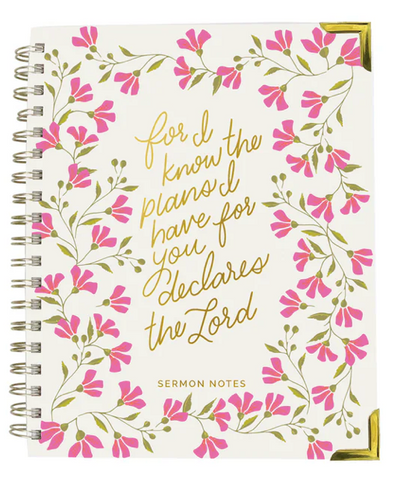 For I
know the
plans I
have for
you
declares
the Lord
SERMON NOTES